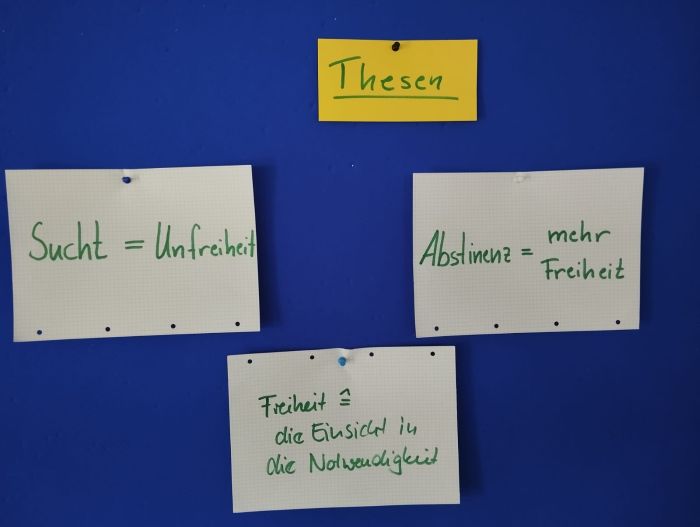 Thesen
Sucht = Unfreiheit
Abstinenz = mehr
Freiheit
Freiheit ≙
die Einsicht in
die Notwendigkeit